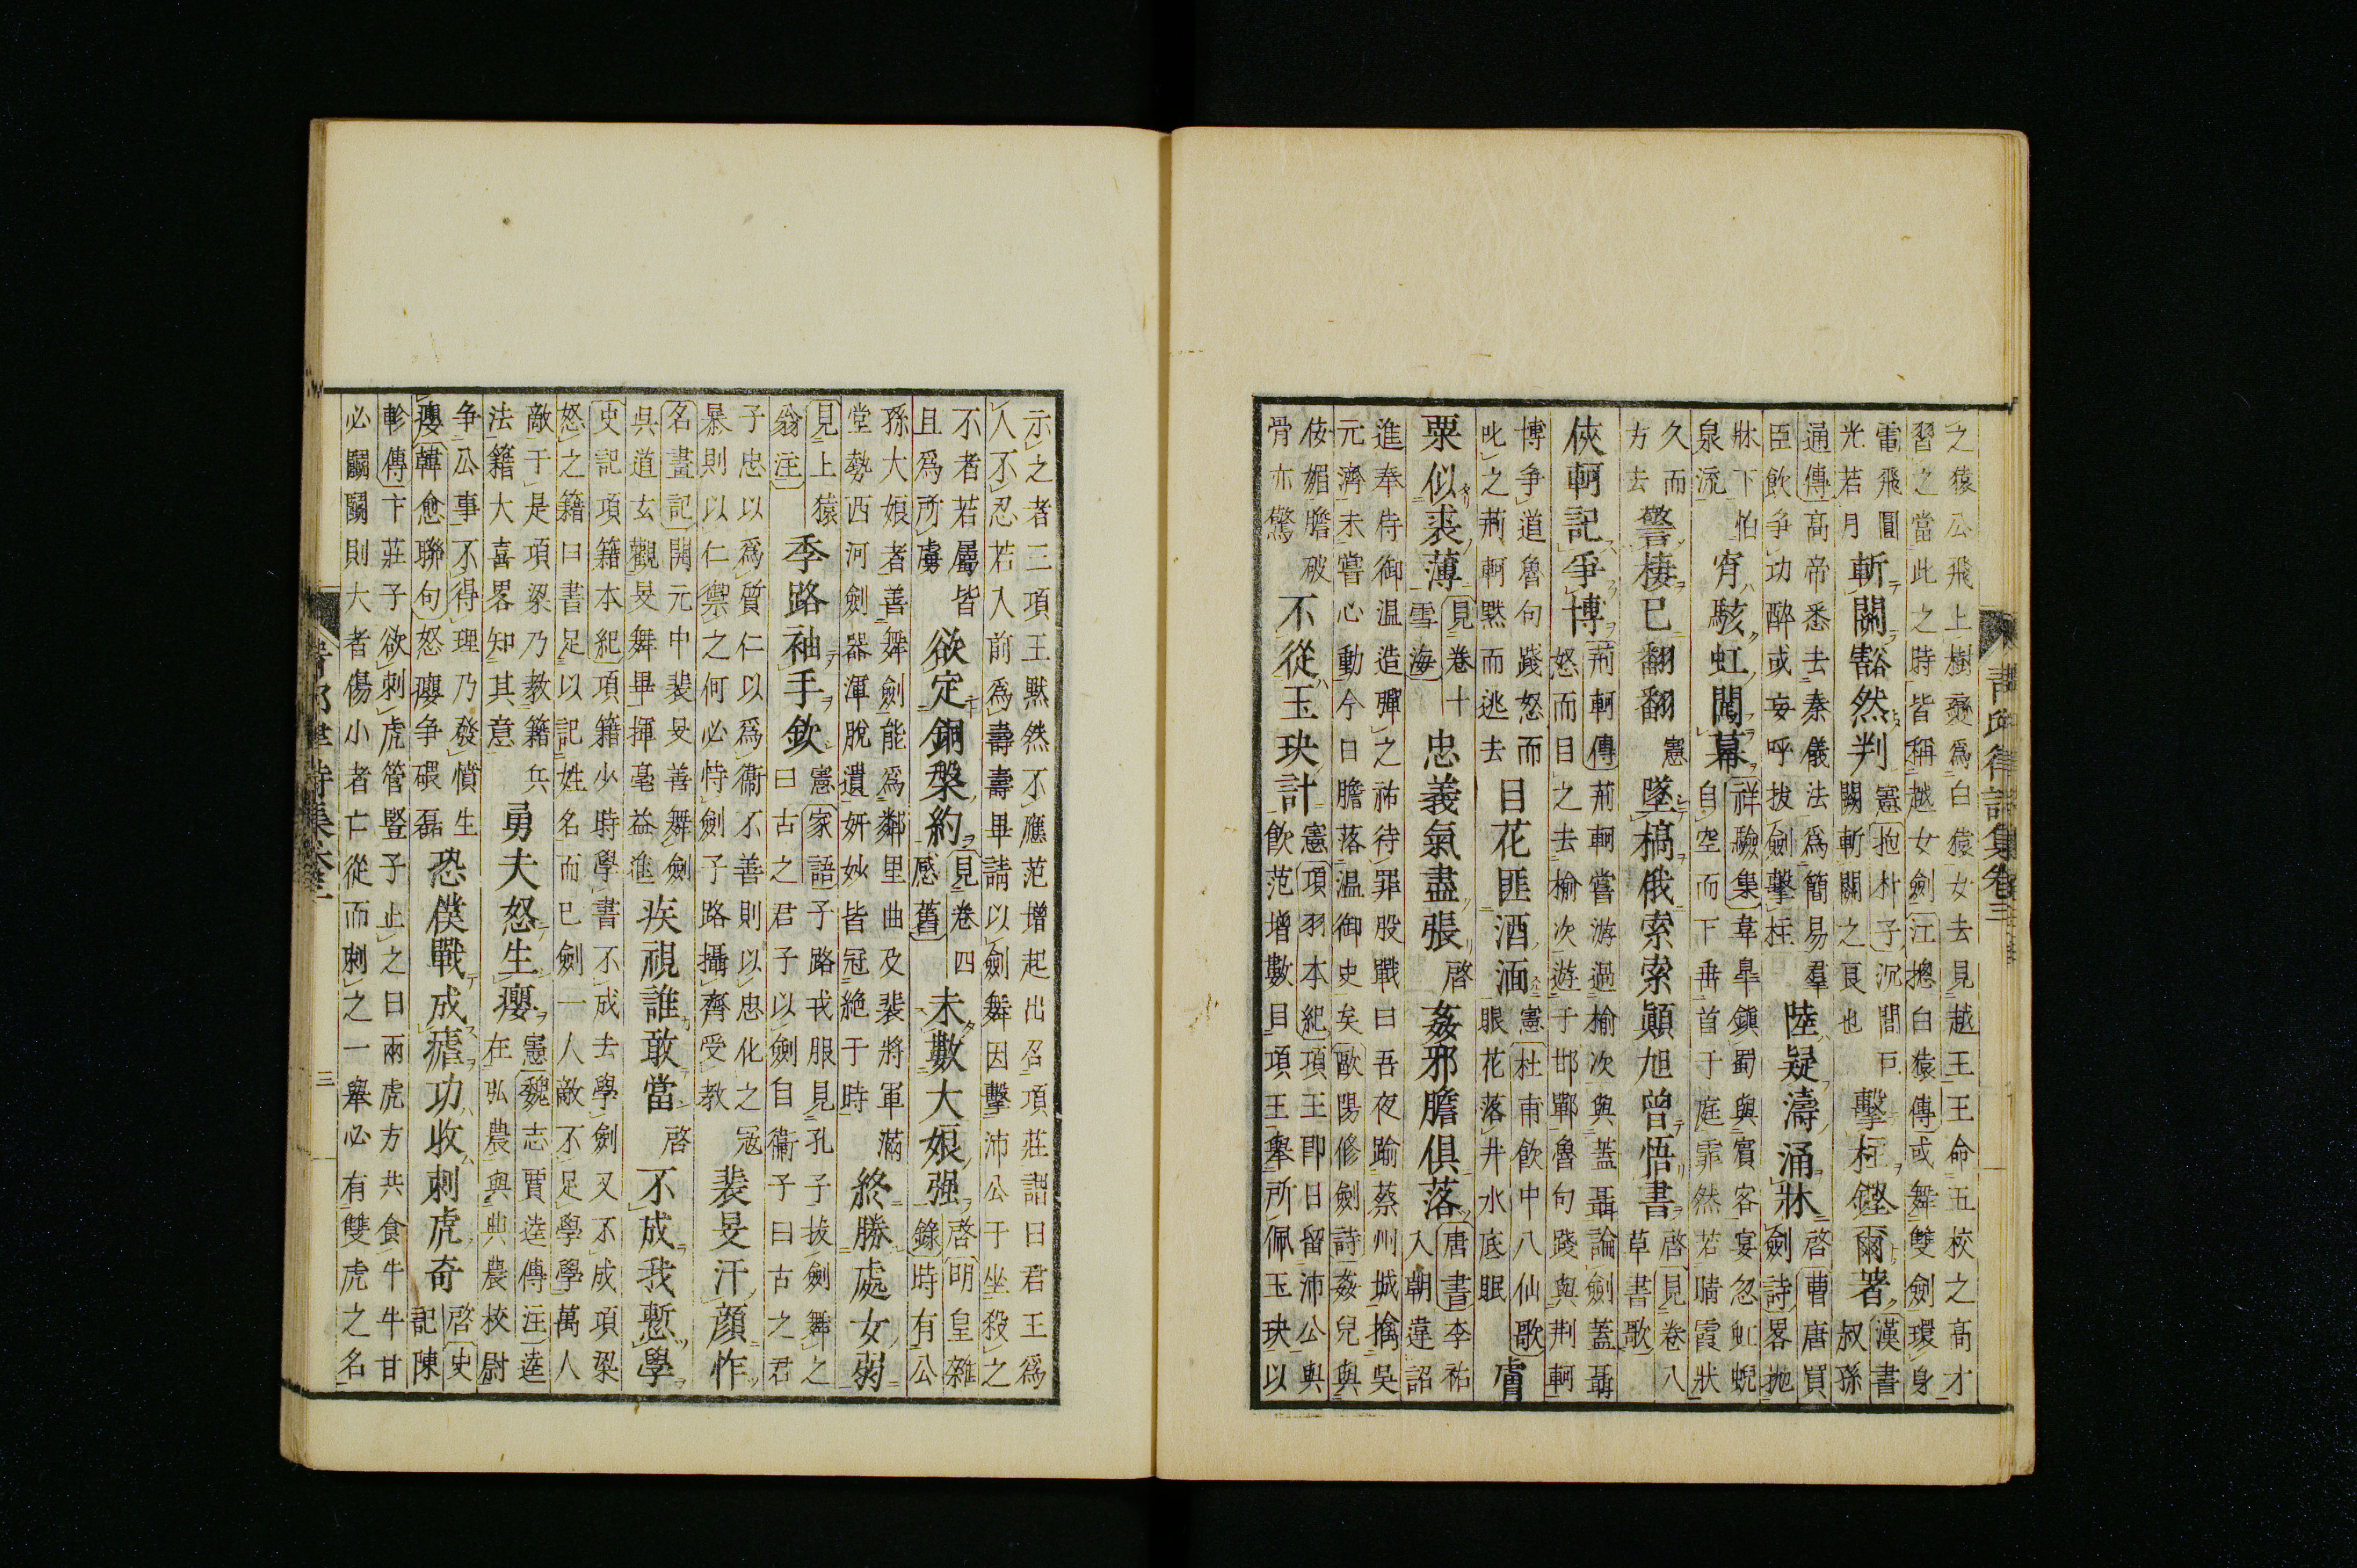 之猿公飛上樹變爲白猿女去見越王王命五校之高才
習之當此之時皆稱越女劍江摠白猿傳或舞雙劍環身
電飛圓
光若月
斬關豁然判
憲抱朴子沉閭巨
闕斬關之良也
擊柱鏗爾著
漢書
叔孫
通傳高帝悉去秦儀法爲簡易羣
臣飲争功醉或妄呼拔劍擊柱
陸疑濤涌牀
啓曹唐買
劍詩畧抛
牀下怕
泉流
宵駭虹闖幕
祥驗集韋皐鎭蜀與賓客宴忽虹蜺
自空而下垂首于庭霏然若晴霞狀
久而
方去
警棲已翻翻
憲
墜槁俄索索顛旭曾悟書
啓見卷八
草書歌
俠軻記爭博
荊軻傳荊軻嘗游過榆次與蓋聶論劍蓋聶
怒而目之去榆次遊于邯鄲魯句踐與荆軻
博争道魯句踐怒而
叱之荊軻黙而逃去
目花匪酒湎
憲杜甫飲中八仙歌
眼花落井水底眠
膚
粟似裘薄
見卷十
雪海
忠義氣盡張
啓
姦邪膽俱落
唐書李祐
入朝違詔
進奉侍御温造彈之祐待罪股戰曰吾夜踰蔡州城擒吳
元濟未嘗心動今日膽落温御史矣歐陽修劍詩姦兒與
佞媚膽破
骨亦驚
不從玉玦計
憲項羽本紀項王即日留沛公與
飲范增數目項王舉所佩玉玦以
示之者三項王黙然不應范增起出召項莊謂曰君王爲
人不忍若入前爲壽壽畢請以劍舞因擊沛公于坐殺之
不者若屬皆
且爲所虜
欲定銅槃約
見卷四
感舊
未數大娘强
啓明皇雜
錄時有公
孫大娘者善舞劍能爲鄰里曲及裴將軍滿
堂勢西河劍器渾脫遺妍妙皆冠絶于時
終勝處女弱
見上猿
翁注
季路袖手欽
憲家語子路戎服見孔子拔劍舞之
曰古之君子以劍自衞子曰古之君
子忠以爲質仁以爲衞不善則以忠化之冦
暴則以仁禦之何必恃劍子路攝齊受教
裴旻汗顔怍
名畫記開元中裴旻善舞劍
吳道玄觀旻舞畢揮毫益進
疾視誰敢當
啓
不成我慙學
史記項籍本紀項籍少時學書不成去學劍又不成項梁
怒之籍曰書足以記姓名而已劍一人敵不足學學萬人
敵于是項梁乃教籍兵
法籍大喜畧知其意
勇夫怒生癭
憲魏志賈逵傳注逵
在弘農與典農校尉
争公事不得理乃發憤生
癭韓愈聯句怒癭争磈磊
恐僕戰成瘧功收刺虎奇
啓史
記陳
軫傳卞莊子欲刺虎管竪子止之曰兩虎方共食牛牛甘
必鬬鬬則大者傷小者亡從而刺之一舉必有雙虎之名
三